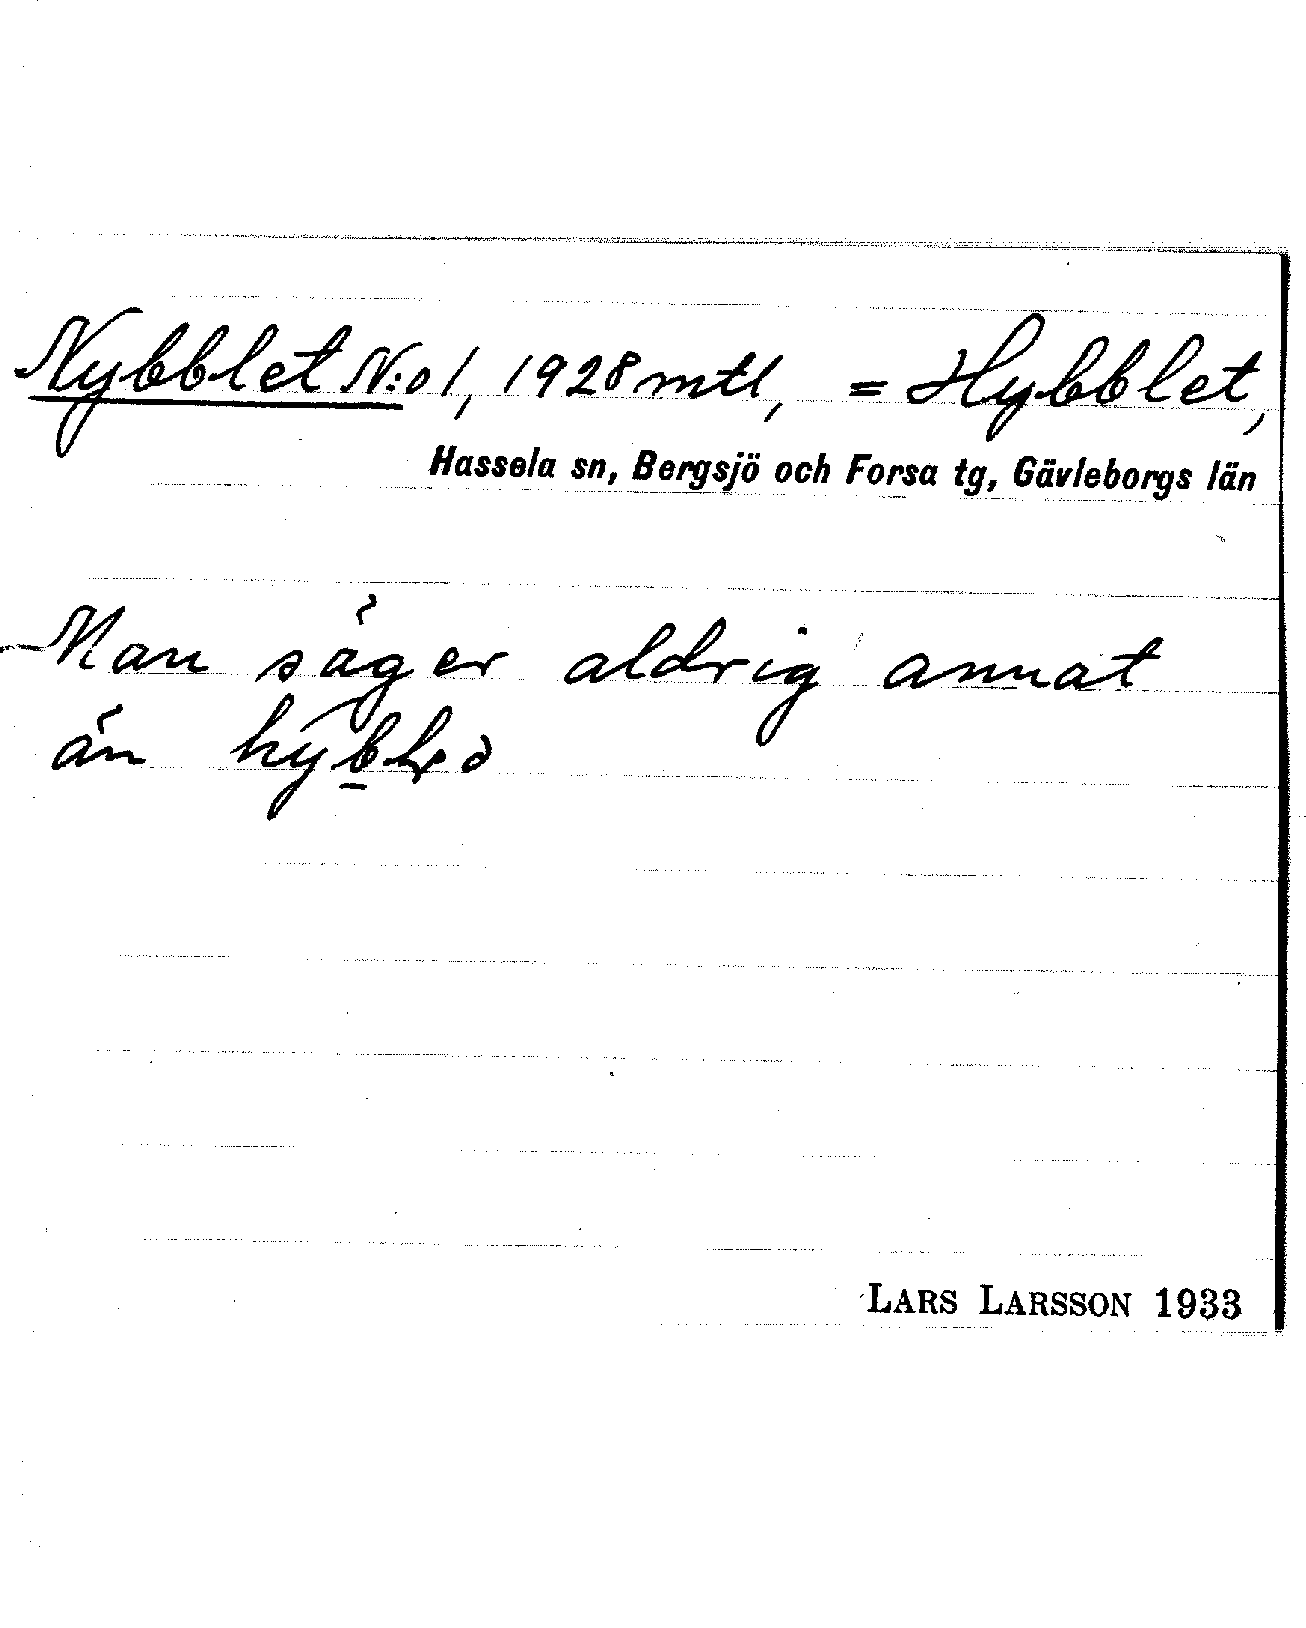 Nybblet N:o 1, 1928 mtl, = Hybblet,
Hassela sn, Bergsjö och Forsa tg, Gävleborgs län
Man säger aldrig annat
än
LARS LARSSON 1933